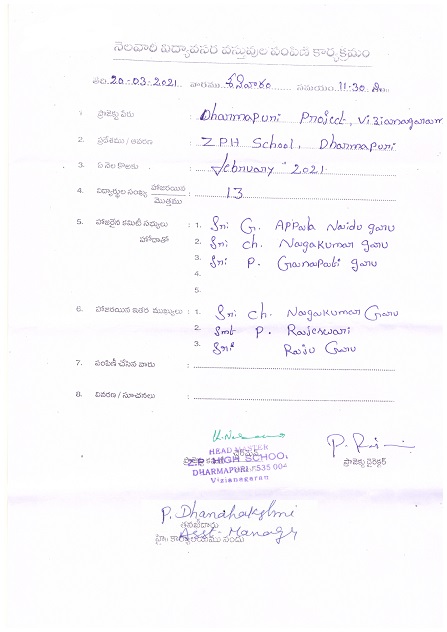 నెలవారి విద్యావసర వస్తువుల పంపిణి కార్యక్రమం
తేది. 20-03-2021 వారము. శనివారం సమయం. 11-30 ని.
1. ప్రాజెక్టు పేరు : Dharmapuri Project, Vizianagaram
2. ప్రదేశము / ఆవరణ : ZPH School, Dharmapuri
3. ఏ నెల కొఱకు : February - 2021
4. విద్యార్ధుల సంఖ్య హాజరయిన / మొత్తము : 13
5. హాజరైన కమిటీ సభ్యులు : 1. Sri G. Appala Naidu garu
హోదాతో 2. Sri ch. Nagakumar garu
3. Sri P. Ganapati garu
4.
5.
6. హాజరయిన ఇతర ముఖ్యులు : 1. Sri ch. Nagakumar Garu
2. Smt P. Rajeswari
3. Sri Raju Garu
7. పంపిణీ చేసిన వారు :
8. వివరణ / సూచనలు :
HEAD MASTER
Z.P. HIGH SCHOOL
DHARMAPURI 535 004
Vizianagaram
ప్రాజెక్టు డైరెక్టర్
P. Dhanalakshmi
Asst-Manager